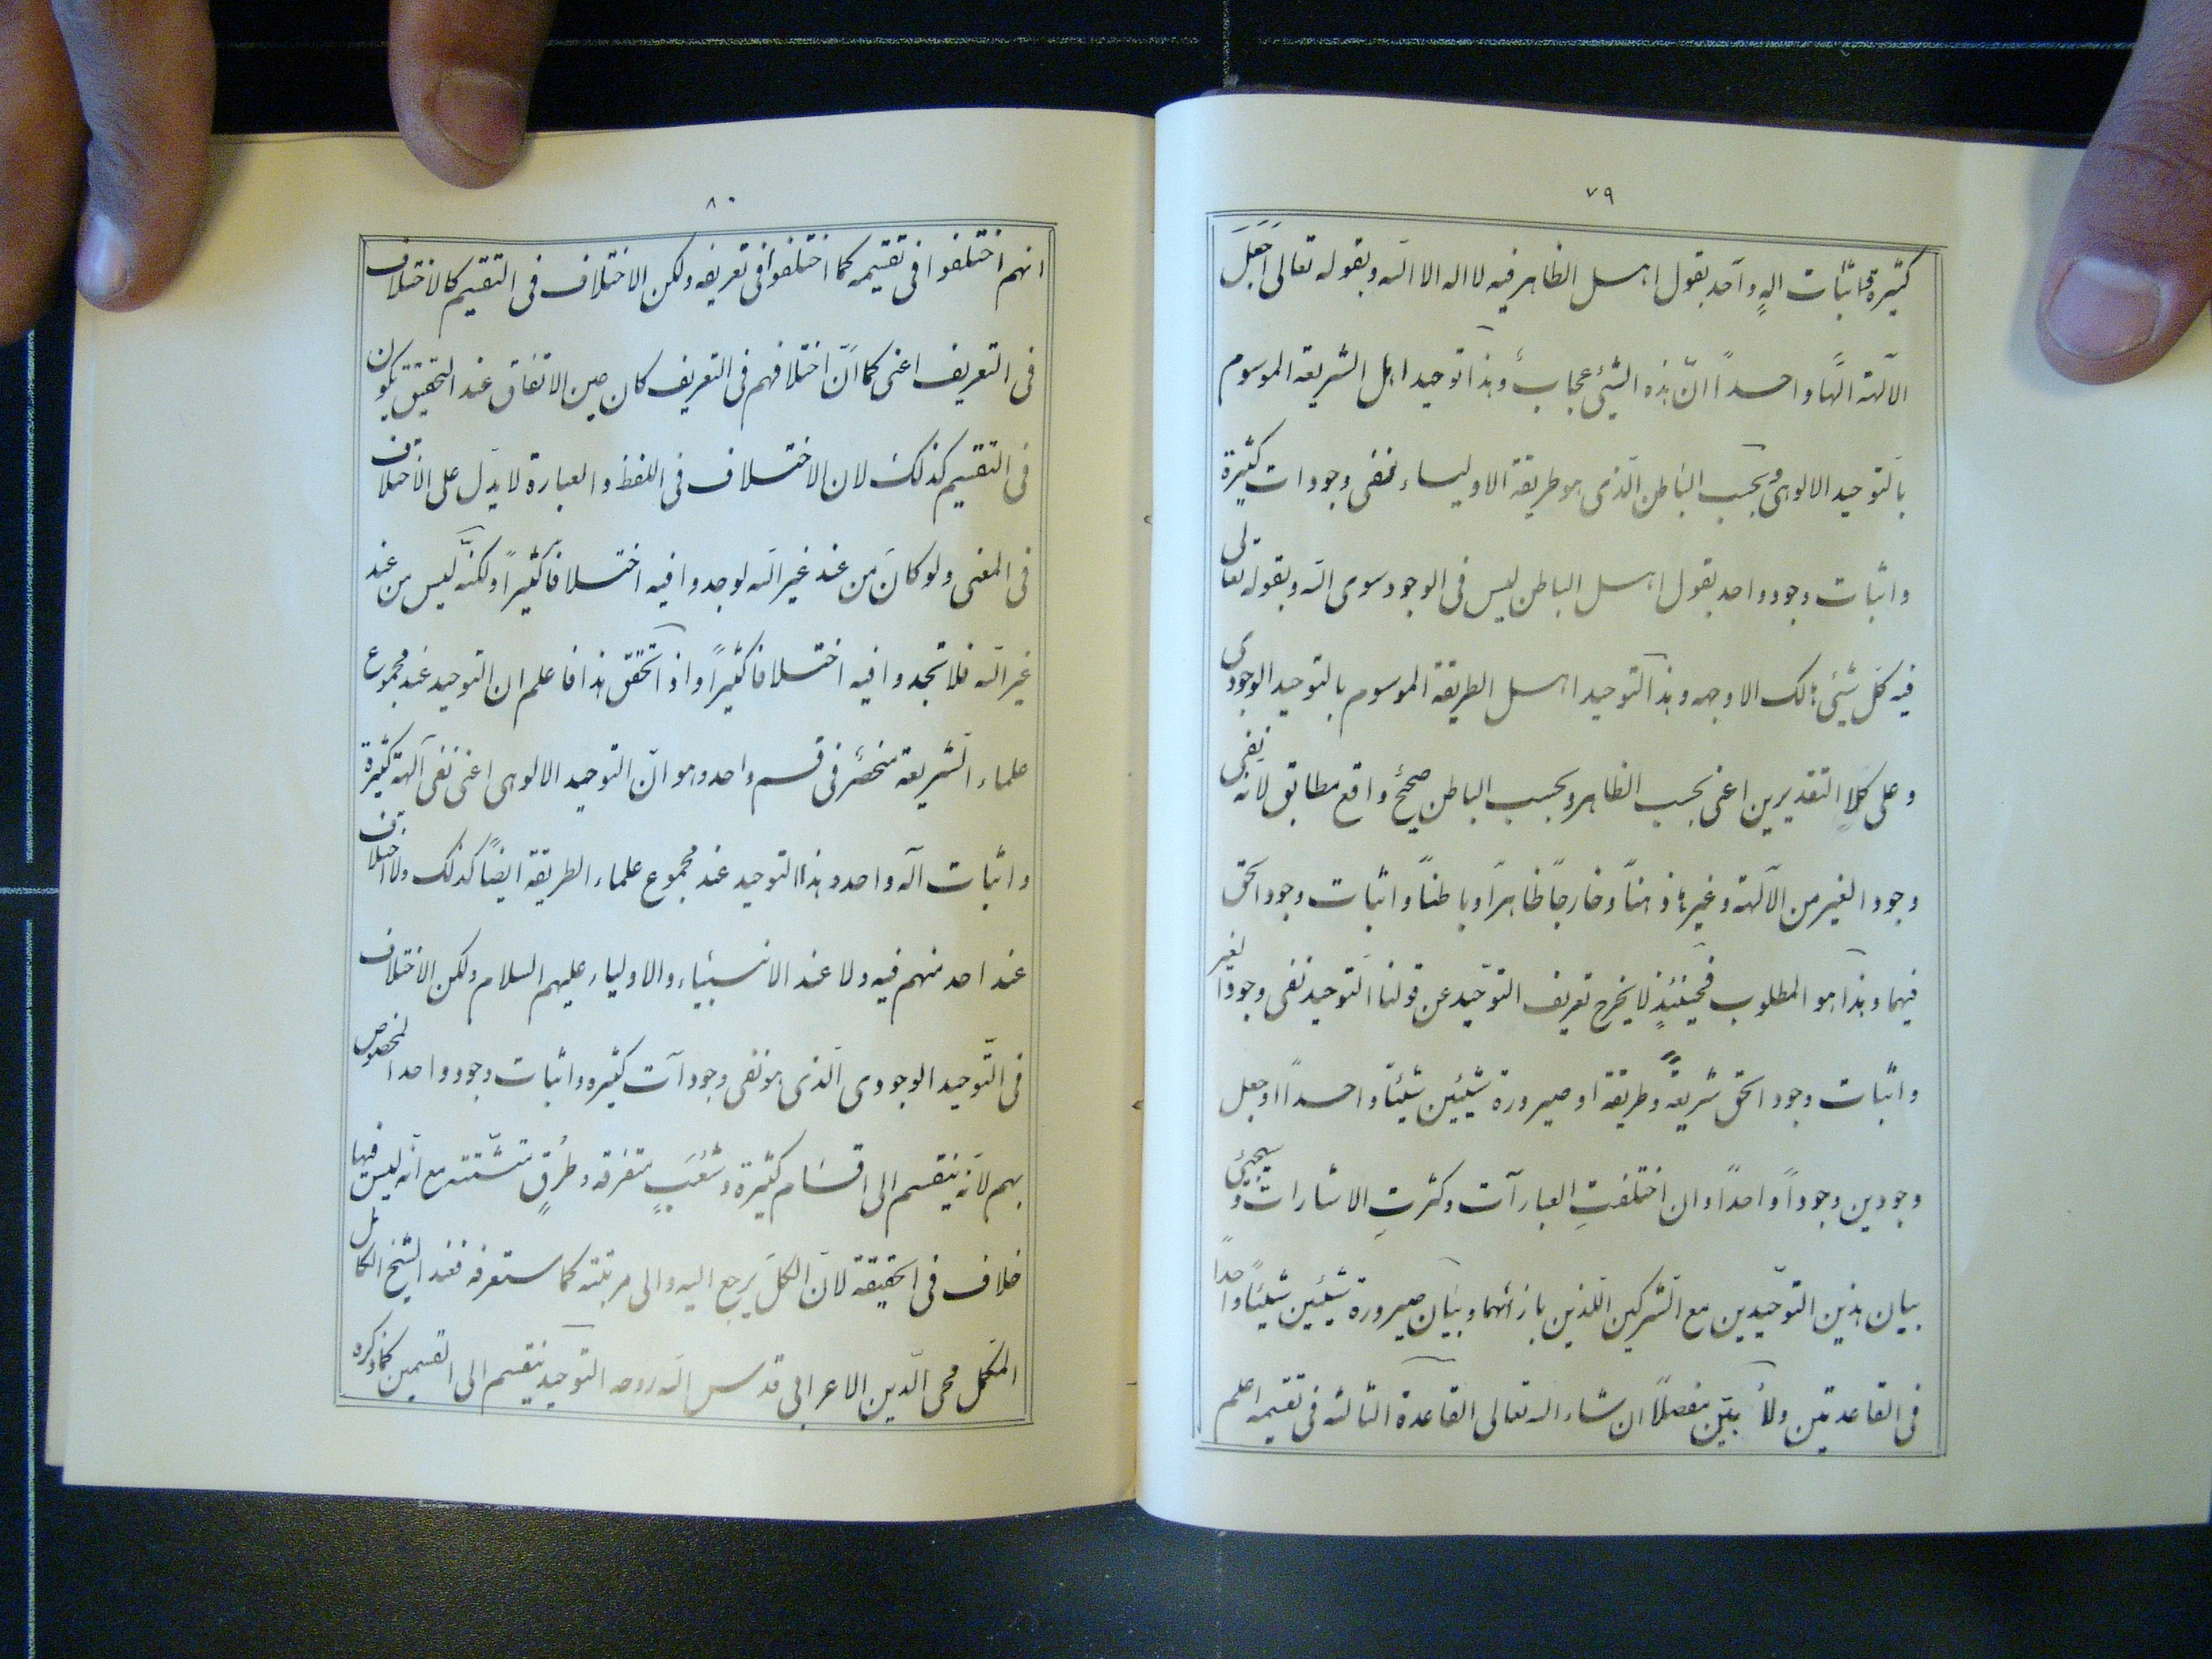 ٧٩
كثيرة واثبات الهٍ واحد بقول اهل الظاهر فيه لا اله الا الله وبقوله تعالى اَجَعَلَ
الآلهة الٰهًا واحداً انّ هذه الشيئ عجابٌ وهذا توحيد اهل الشريعه الموسوم
بالتوحيد الالوهى وبحسب الباطن الّذى هو طريقة الاولياء فنفى وجودات كثيرة
واثبات وجود واحد بقول اهل الباطن ليس فى الوجود سوى الله وبقوله تعالى
فيه كلّ شيئى هالك الا وجهه وهذا التوحيد اهل الطريقة الموسوم بالتوحيد الوجودى
وعلى كلاٍ التقديرين اعنى بحسب الظاهر وبحسب الباطن صحيحٌ واقع مطابق لانّه نفى
وجود الغير من الآلهة وغيرها ذهناً وخارجاً ظاهراً وباطناً واثبات وجود الحق
فيهما وهذا هو المطلوب فحينئذٍ لا يخرج تعريف التوحيد عن قولنا التوحيد نفى وجود الغير
واثبات وجود الحق شريعةً وطريقة او صيرورة شيئين شيئاً واحداً او جعل
وجودين وجوداً واحداً وان اختلفتِ العبارآت وكثرتِ الاشارات وسيجيئ
بيان هذين التوحيدين مع الشركين اللّذين بازائهما وبيان صيرورة شيئين شيئاً واحداً
فى القاعدتين مفصلاً ان شاء الله تعالى القاعدة الثالثه فى تقسيمه اعلم
٨٠
انهم اختلفوا فى تقسيمه كما اختلفوا فى تعريفه ولكن الاختلاف فى التقسيم كالاختلاف
فى التعريف اعنى كما انّ اختلافهم فى التعريف كان عين الاتفاق عند التحقيق يكون
فى التقسيم كذلك لان الاختلاف فى اللفظ والعبارة لا يدّل على الاختلاف
فى المعنى ولو كانَ من عند غير الله لوجدوا فيه اختلافاً كثيراً ولكنّه ليس من عند
غير الله فلا تجدوا فيه اختلافا كثيراً واذا تحقق هذا فاعلم ان التوحيد عند مجموع
علماء الشريعة منحصر فى قسم واحد وهو انّ التوحيد الالوهى اعنى نفى آلهة كثيرة
واثبات آله واحد وهذا التوحيد عند مجموع علماء الطريقه ايضاً كذلك ولا اختلاف
عند احد منهم فيه ولا عند الانبيٰاء والاولياء عليهم السلام ولكن الاختلاف
فى التّوحيد الوجودى الّذى هو نفى وجودآت كثيره واثبات وجود واحد المخصوص
بهم لانّه ينقسم الى اقسام كثيرة وشُعَبٍ متفرقه وطُرقٍ متشتّته مع انّه ليس فيها
خلاف فى الحقيقة لانّ الكلّ يرجع اليه والى مرتبته كما ستعرفه فعند الشيخ الكامل
المكمل محى الّدين الاعرابى قدس الله روحه التوحيد ينقسم الى القسمين كما ذكره